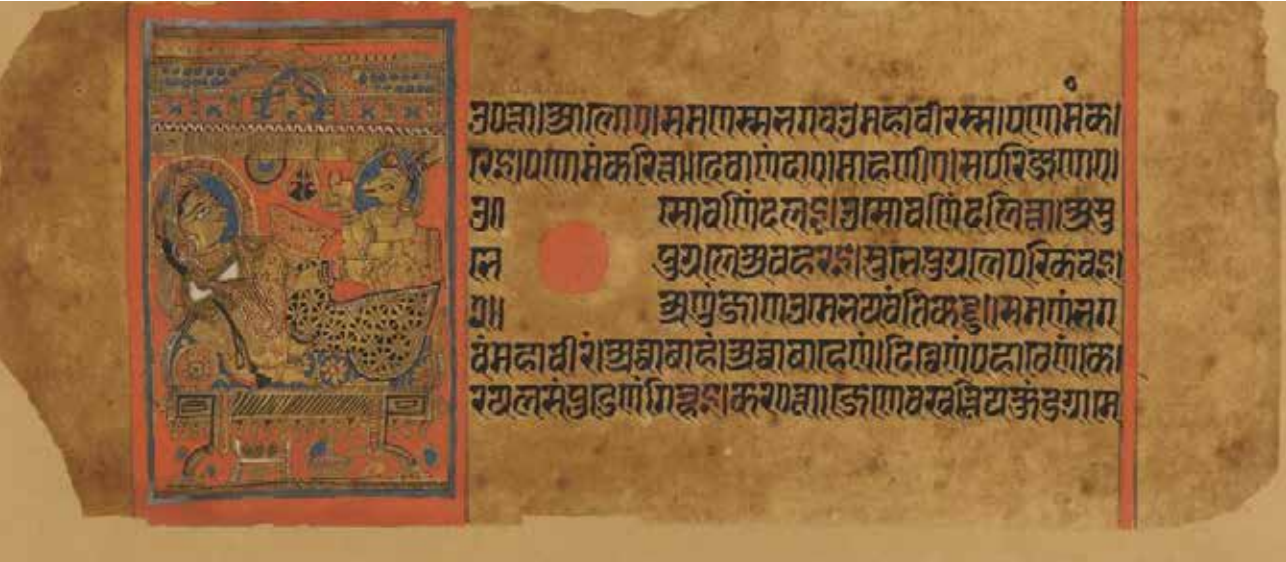 उपत्ता।आलोए।समणस्सभगवउमहावीरस्स।पणामंक।
रेइ।पणामंकरित्ता।देवाणंदाए।माहणीए।सपरिजणाए।
उ॥ सोवणिंदलइ।उसोवणिंदलित्ता।असु
भे पुग्गलेअवहरइ।सुभेपुग्गलेपरिकवइ।
ए॥ अणुजाणउमेभयवंतिकट्टु॥समणंभग
वंमहावीरं।अव्वाबाहं।अव्वाबाहेणं।दिव्वेणंपहावेणं।क।
रयलसंपुडेणंगिह्णइ।करएत्ता।जेणेवखत्तियकुंडग्गामे